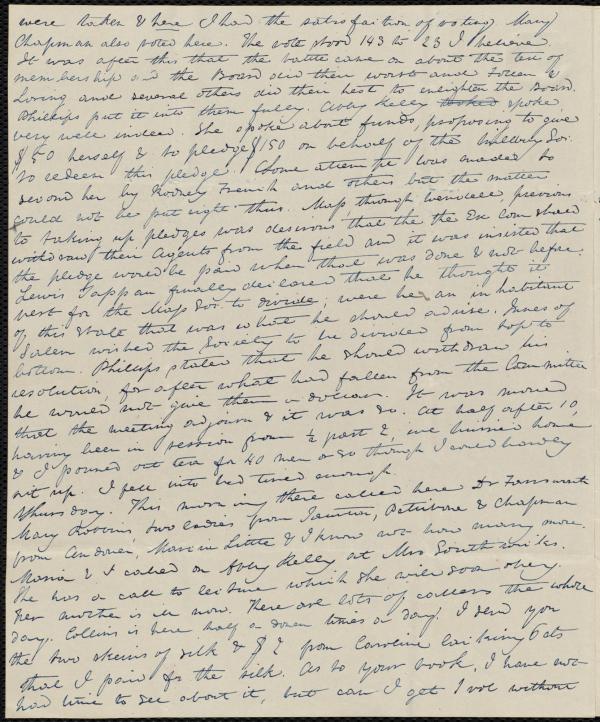 were taken & here I had the satisfaction of voting. Mary
Chapman also voted here. The vote stood 143 to 23 I believe.
It was after this that the battle came on about the ten of
membership and the Board did their worst and Follen &
Loring and several others did their best to enlighten the Board.
Phillips put it into them fully. Abby Kelley spoke
very well indeed. She spoke about funds, proposing to give
$50 herself & to pledge $150 on behalf of the Millbury Soc.
to redeem this pledge. Some attempt was made to
second her by Rodney French and others but the matter
could not be put right thus. Mass through Wendell, previous
to taking up pledges was desirous that the the Ex Com should
withdraw their Agents from the field and it was insisted that
the pledge would be paid when that was done & not before.
Lewis Tappan finally declared that he thought it
best for the Mass Soc. to divide; were he an inhabitant
of this State that was what he should advise. Innes of
Salem wished the Society to be divided from top to
bottom. Phillips stated that he should withdraw his
resolution, for after what had fallen from the Committee
he would not give them a dollar. It was moved
that the meeting adjourn & it was so. At half after 10,
having been in session from ½ past 2, we hurried home
& I poured out tea for 40 men or so though I could hardly
sit up. I fell into bed tired enough.
Thursday. This morning there called here Dr Farnsworth
Mary Robbins, two ladies from Taunton, Pettibone & Chapman
from Andover, Maria Little & I know not how many more.
Maria & I called on Abby Kelly at Mrs Southwicks.
She has a call to lecture which she will soon obey.
Her mother is ill now. There are lots of callers the whole
day. Collins is here half a dozen times a day. I send you
the two skeins of silk & $2 from Caroline lacking 6 cts
that I paid for the silk. As to your book, I have not
had time to see about it, but can I get 1 vol without